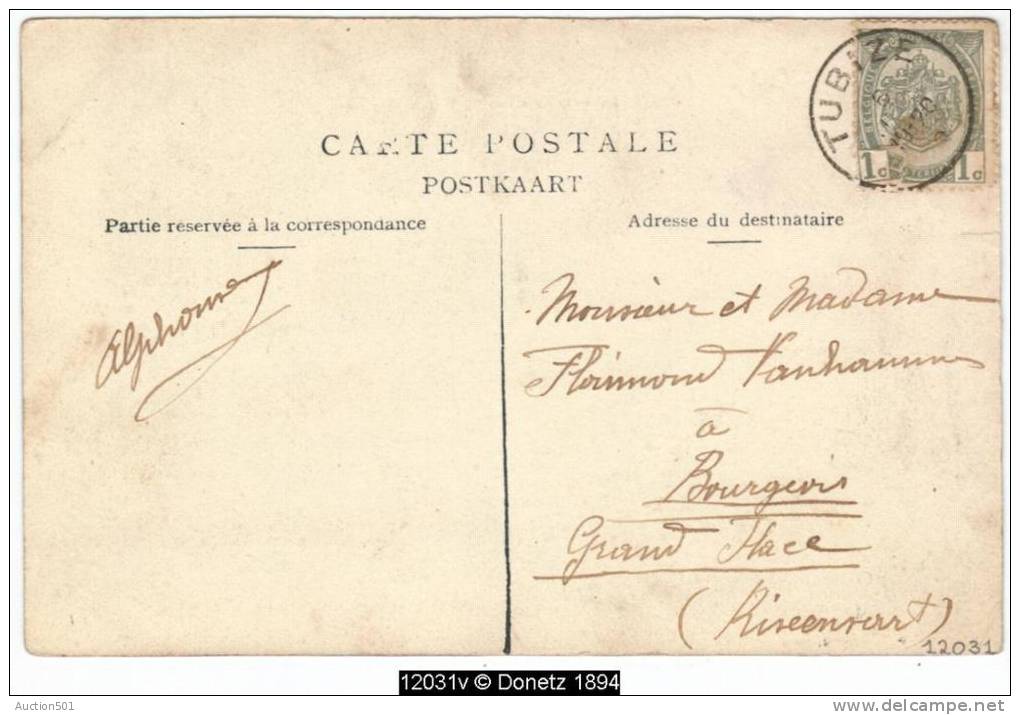 TUBIZE
BELGIQUE
1c 1c
CARTE POSTALE
POSTKAART
Partie réservée à la correspondance
Adresse du destinataire
Alphonse
Monsieur et Madame
Florimond Vanhamme
à
Bourgeois
Grand Place
(Rixensart)
12031
12031v © Donetz 1894
Auction501
www.delcampe.net